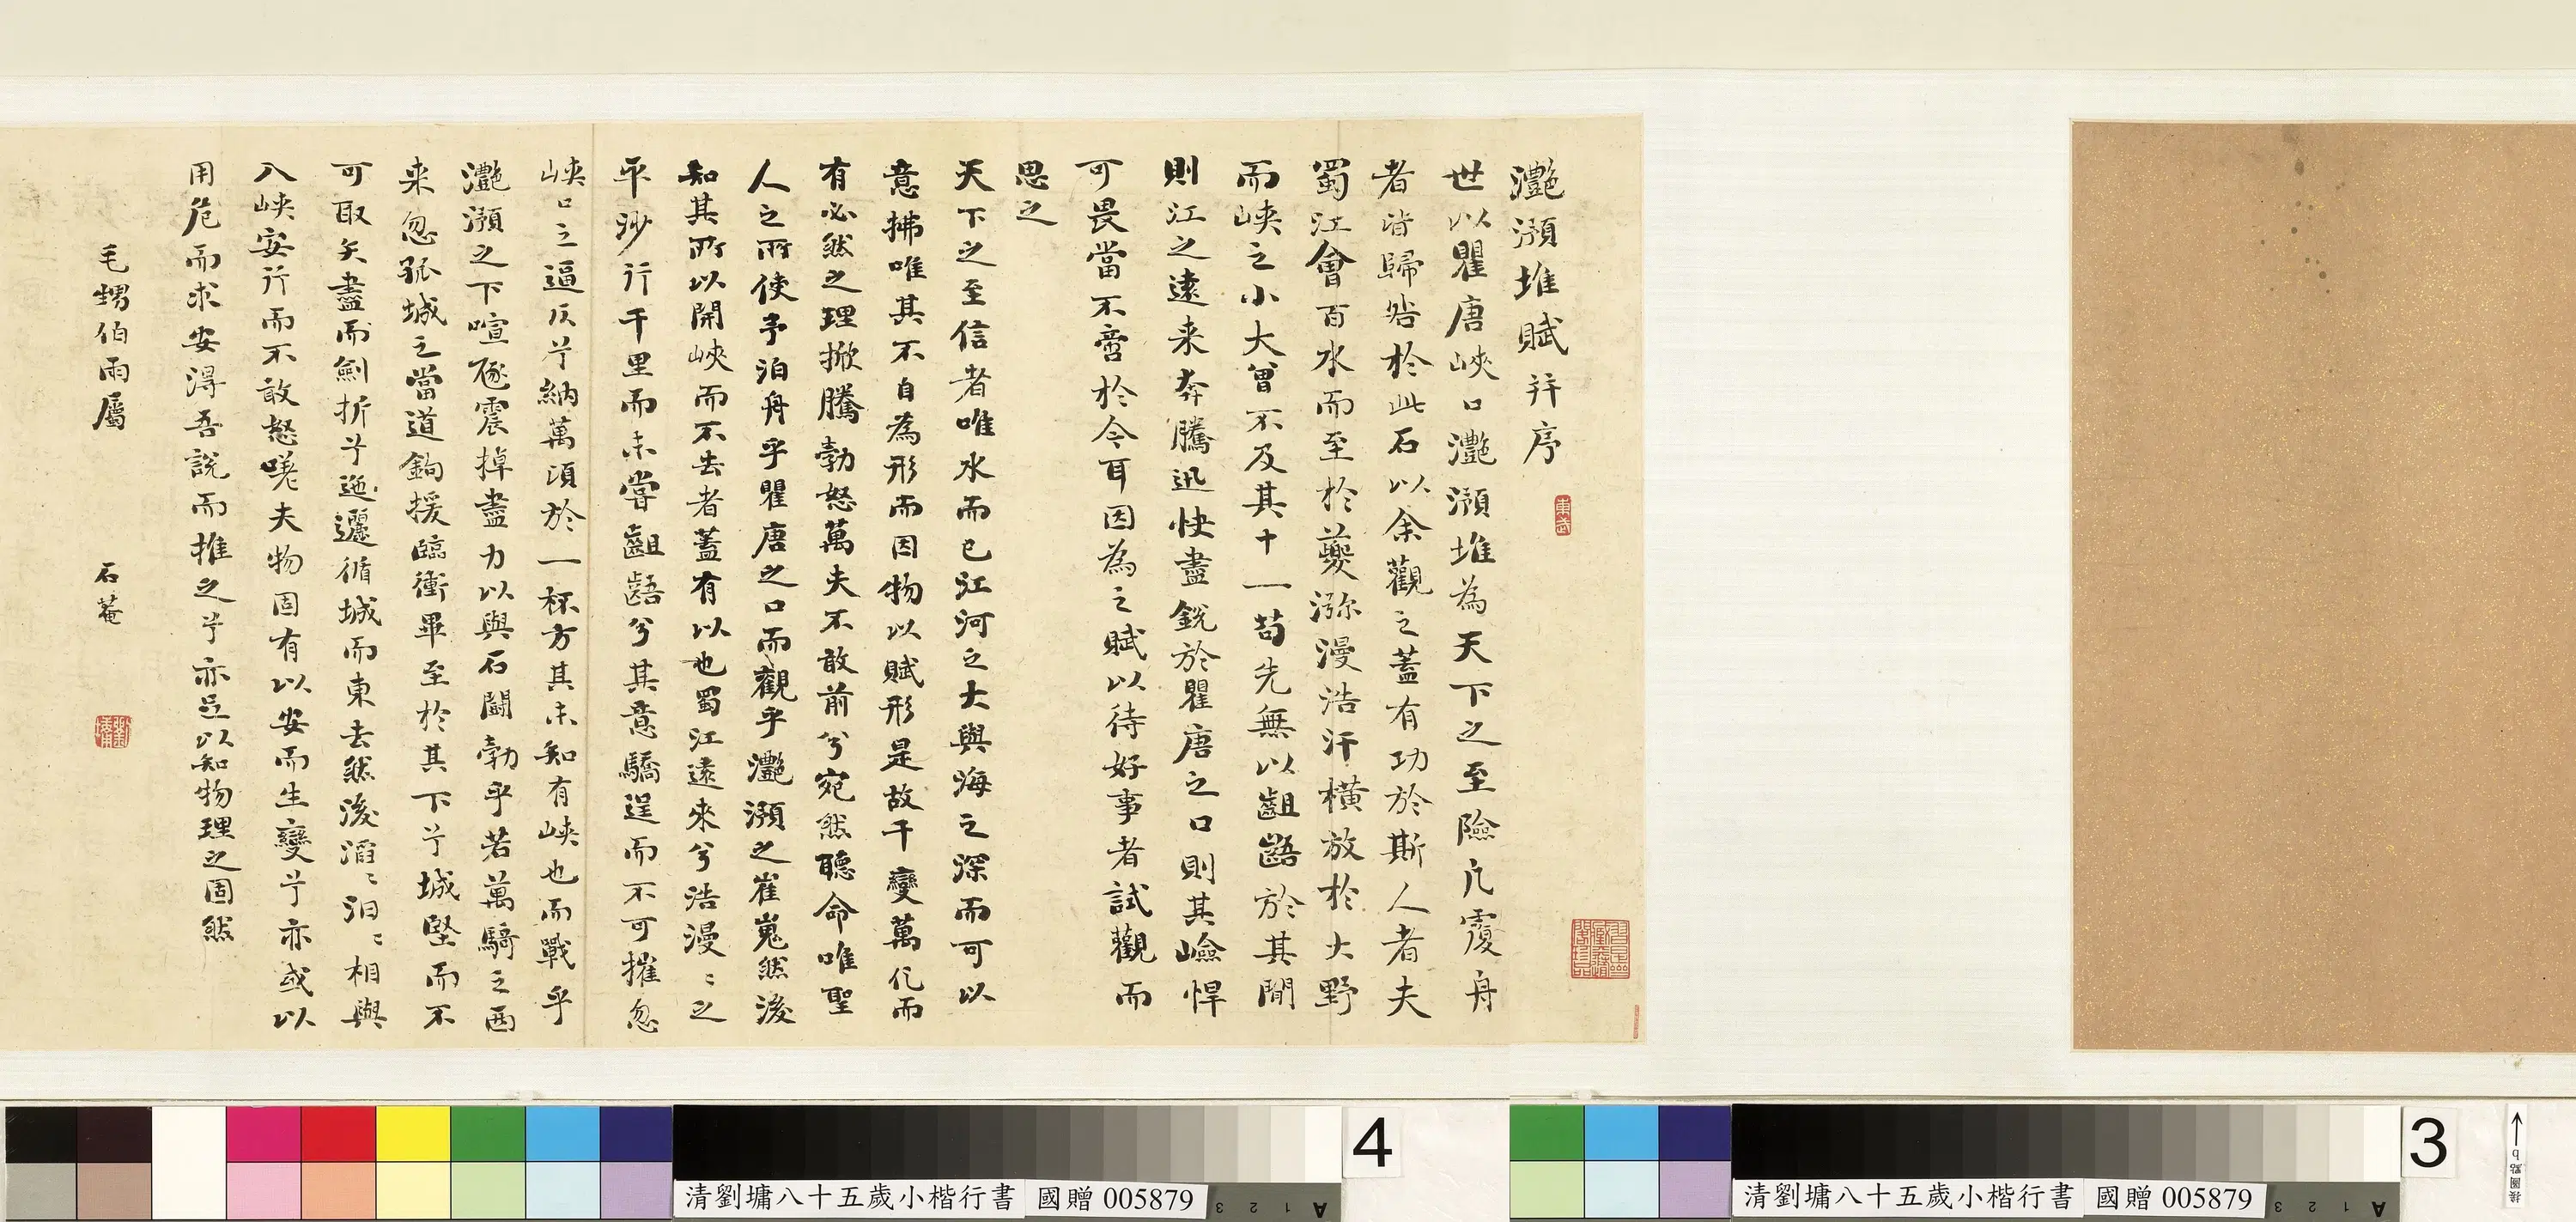 灔澦堆賦并序
世以瞿唐峽口灔澦堆為天下之至險凢覆舟
者皆歸咎於此石以余觀之蓋有功於斯人者夫
蜀江會百水而至於夔瀰漫浩汗橫放於大野
而峽之小大曾不及其十一苟先無以齟齬於其間
則江之遠来奔騰迅快盡銳於瞿唐之口則其嶮悍
可畏當不啻於今耳因為之賦以待好事者試觀而
思之
天下之至信者唯水而已江河之大與海之深而可以
意拂唯其不自為形而因物以賦形是故千變萬化而
有必然之理掀騰勃怒萬夫不敢前兮宛然聽命唯聖
人之所使予泊舟乎瞿唐之口而觀乎灔澦之崔嵬然後
知其所以開峽而不去者蓋有以也蜀江遠來兮浩漫〻之
平沙行千里而未嘗齟齬兮其意驕逞而不可摧忽
峽口之逼仄兮納萬頃於一杯方其未知有峽也而戰乎
灔澦之下喧豗震掉盡力以與石鬪勃乎若萬騎之西
来忽孤城之當道鉤援臨衝畢至於其下兮城堅而不
可取矢盡而劍折兮迤邐循城而東去然後滔〻汩〻相與
入峽安行而不敢怒嗟夫物固有以安而生變兮亦或以
用危而求安得吾說而推之兮亦足以知物理之固然
毛甥伯雨屬
石菴
東武
劉墉
4
3
清劉墉八十五歲小楷行書 國贈 005879
清劉墉八十五歲小楷行書 國贈 005879
A 1 2 3
A 1 2 3